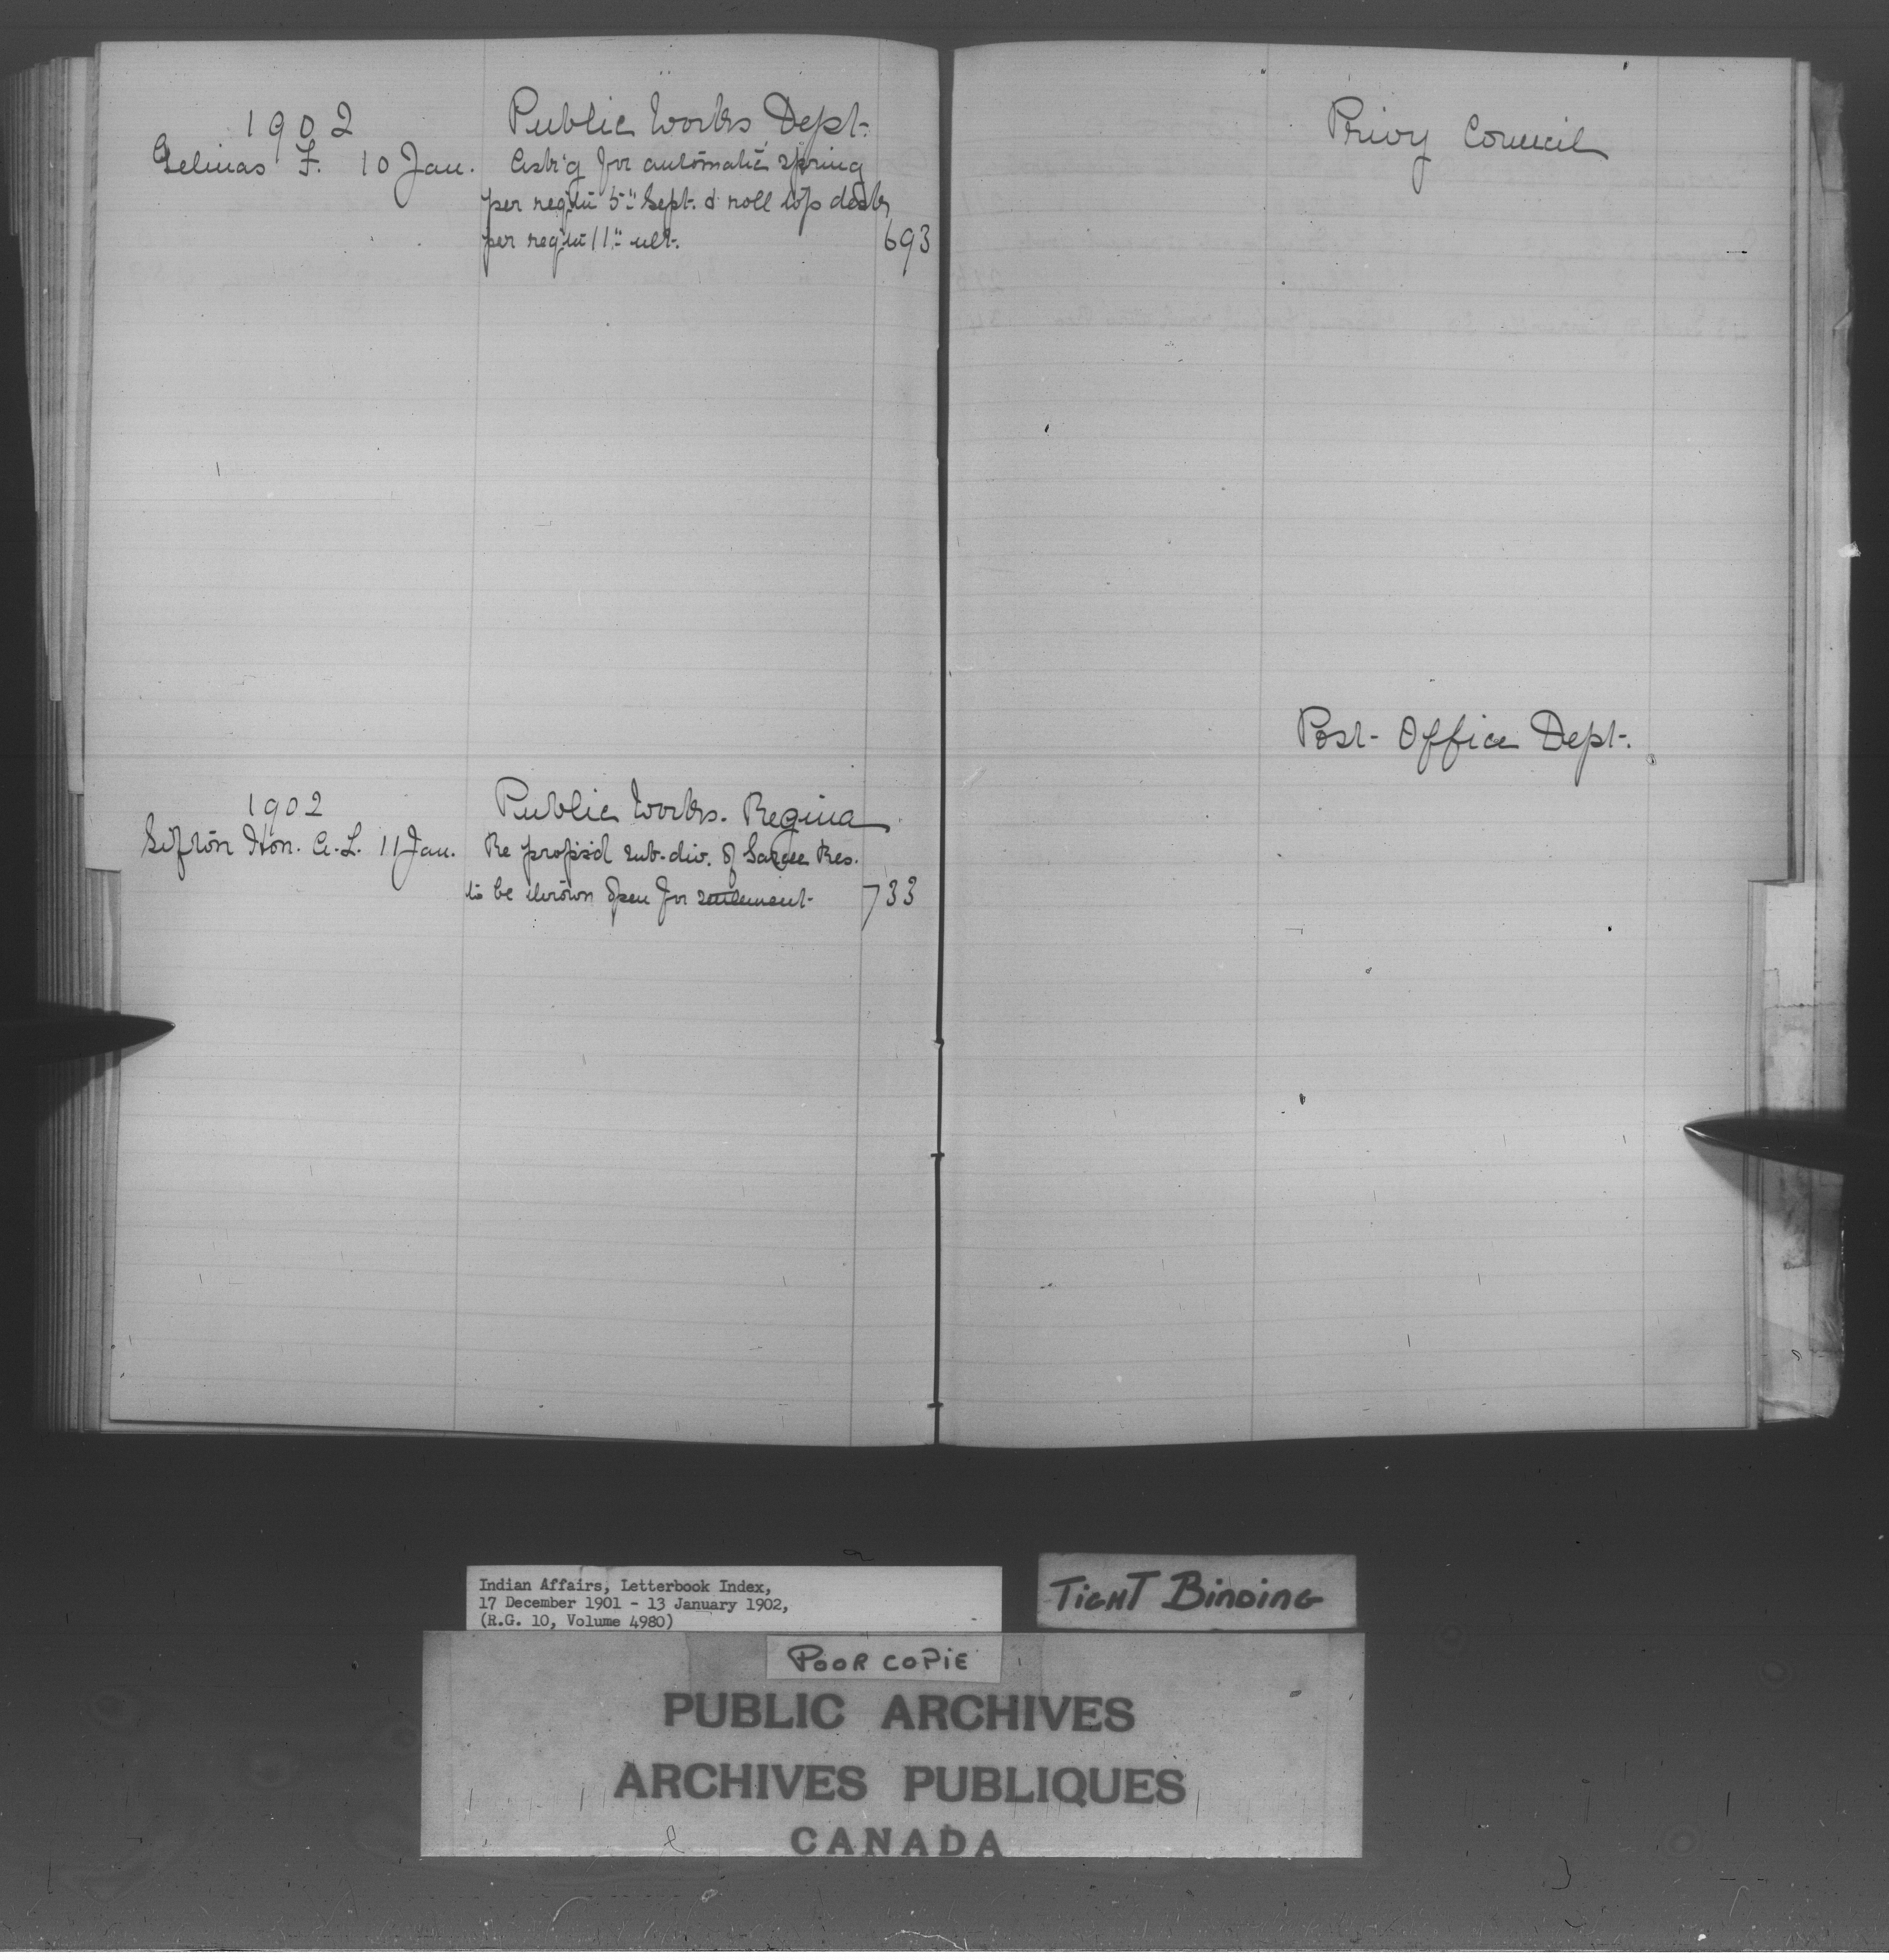 1902
Public Works Dept.
Gelinas F. 10 Jan. Ask'g for automatic spring
per reqt'n 5th Sept. & roll top desks
per reqt'n 11th ult. 693
1902
Public Works. Regina
Sifton Hon. A. L. 11 Jan. Re propos'd sub-div. of Sarcee Res.
to be thrown open for settlement 733
Privy Council
Post-Office Dept.
Indian Affairs, Letterbook Index,
17 December 1901 - 13 January 1902,
(R.G. 10, Volume 4980)
TIGHT BINDING
POOR COPIE
PUBLIC ARCHIVES
ARCHIVES PUBLIQUES
CANADA